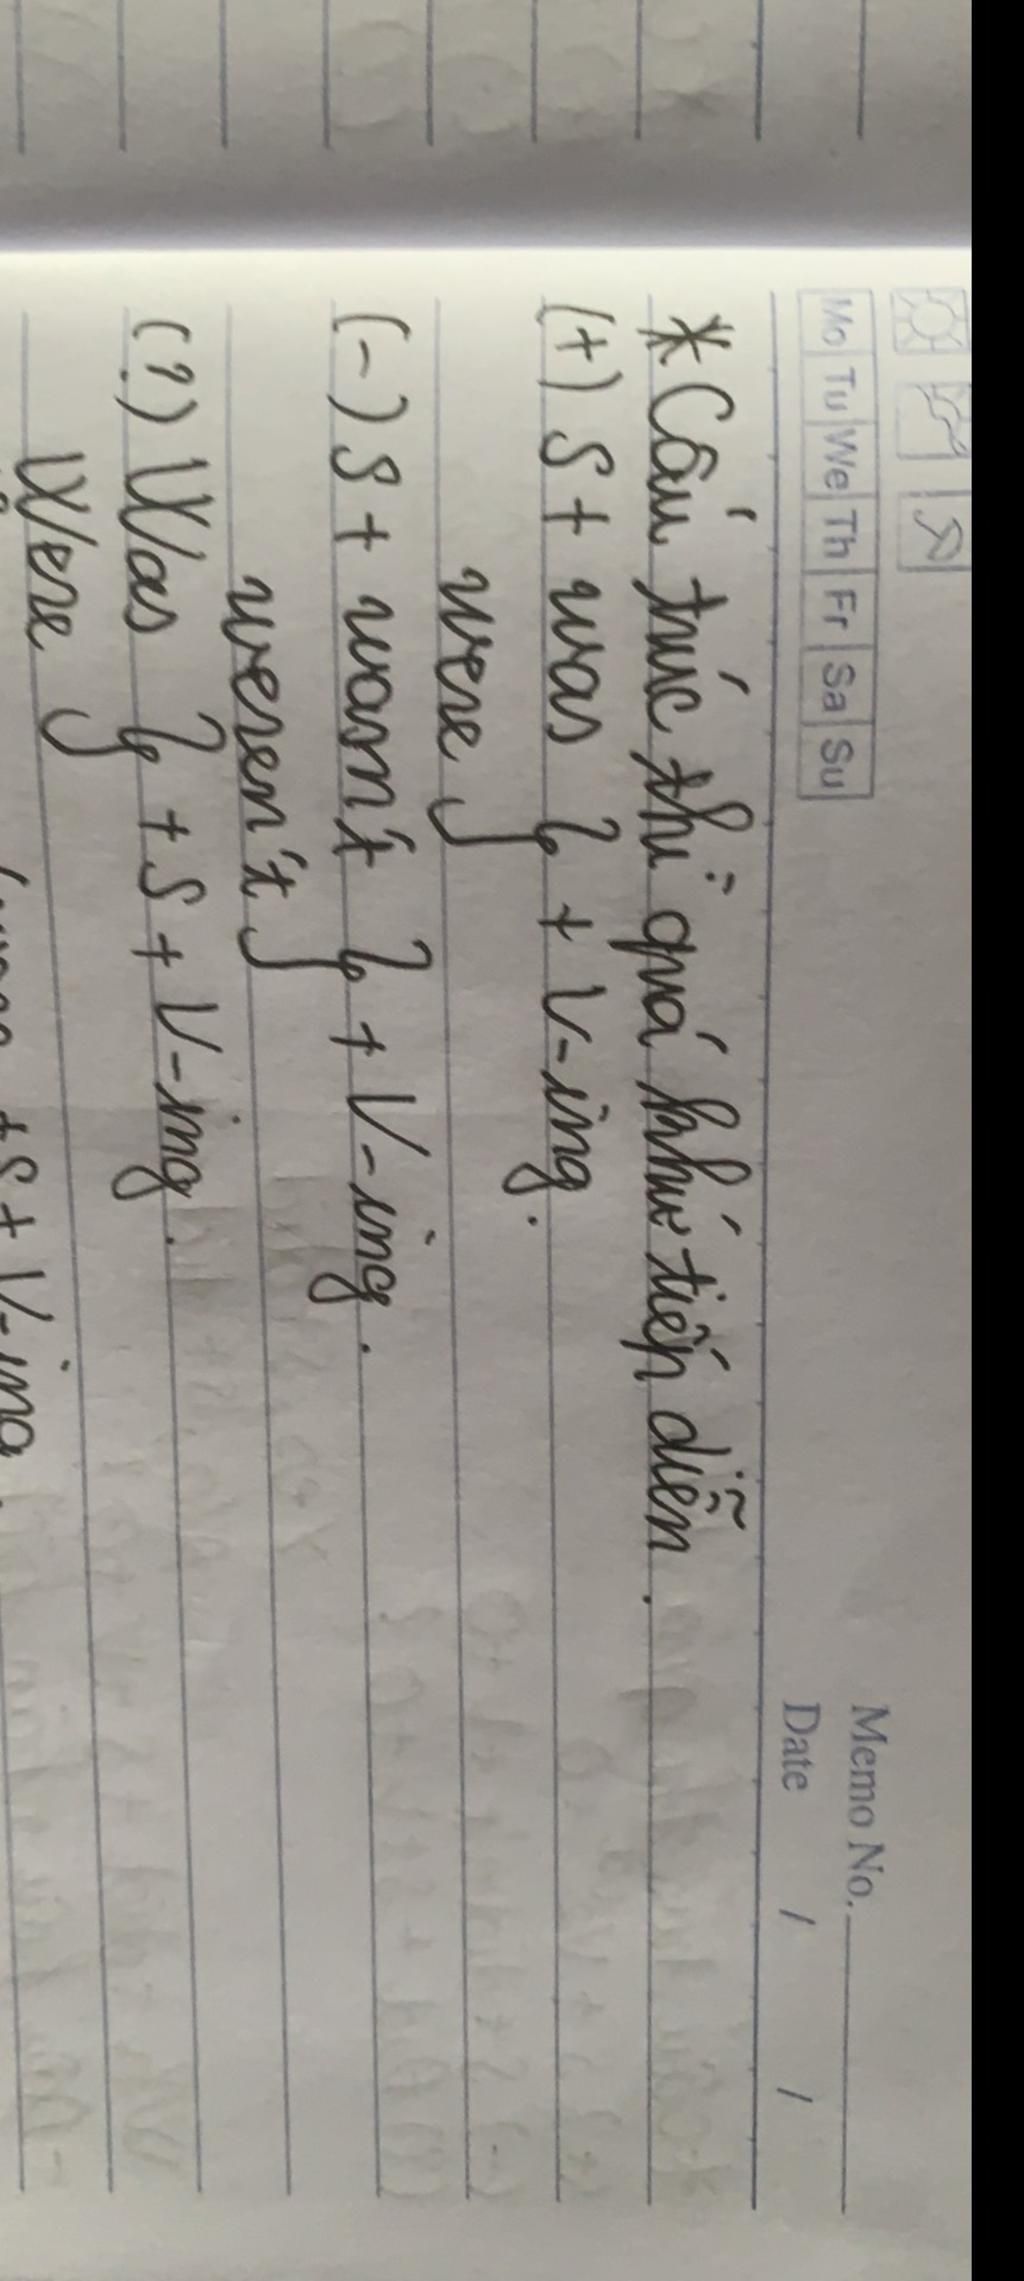 Memo No.
Mo Tu We Th Fr Sa Su
Date / /
* Cấu trúc thì quá khứ tiếp diễn.
(+) S + was } + V-ing.
were
(-) S + wasn't } + V-ing.
weren't
(?) Was } + S + V-ing.
Were
+ S + V-ing.